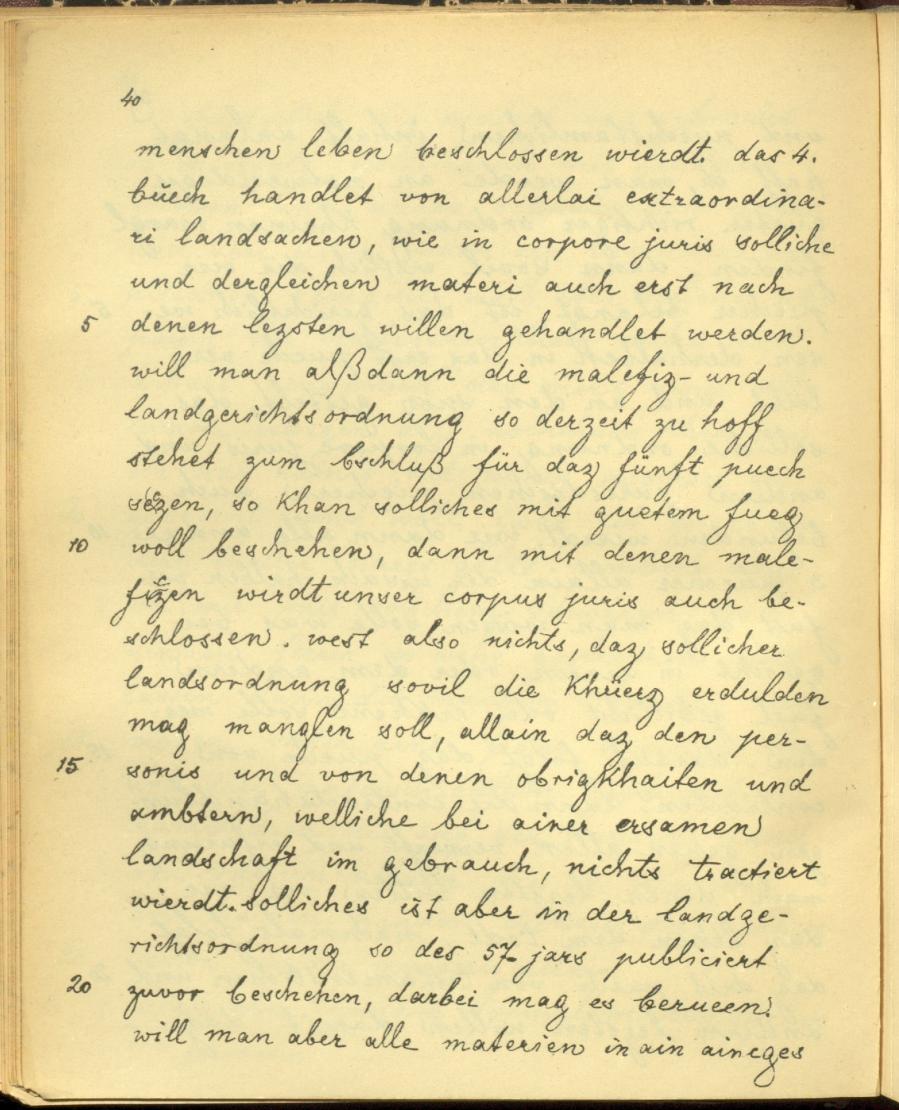 40
menschen leben beschlossen wierdt. das 4.
büech handlet von allerlai extraordina-
ri landsachen, wie in corpore juris solliche
und dergleichen materi auch erst nach
5 denen lezsten willen gehandlet werden.
will man alßdann die malefiz- und
landgerichtsordnung so derzeit zu hoff
stehet zum bschluß für daz fünft puech
sezen, so khan solliches mit guetem fueg
10 woll beschehen, dann mit denen male-
fizen wirdt unser corpus juris auch be-
schlossen. west also nichts, daz sollicher
landsordnung sovil die khüerz erdulden
mag manglen soll, allain daz den per-
15 sonis und von denen obrigkhaiten und
ambtern, welliche bei ainer ersamen
landschaft im gebrauch, nichts tractiert
wierdt. solliches ist aber in der landge-
richtsordnung so des 57 jars publiciert
20 zuvor beschehen, darbei mag es berueen.
will man aber alle materien in ain aineges